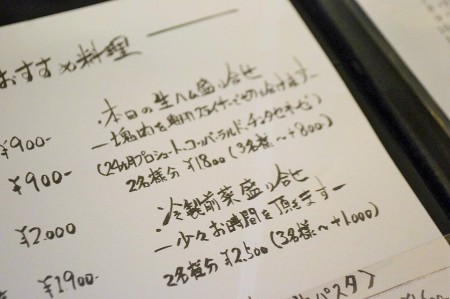 おすすめ料理
¥900-
¥900-
¥2,000
¥1900-
・本日の生ハム盛り合せ
ー塊肉を専用スライサーで切り落とします ー
(24ヵ月プロシュート、コッパ、ラルド、チンタセネーゼ)
2名様分 ¥1800 (3名様〜+800)
・冷製前菜盛り合せ
ー少々お時間を頂きますー
2名様分 ¥2,500 (3名様〜+1000)
パスタ〉